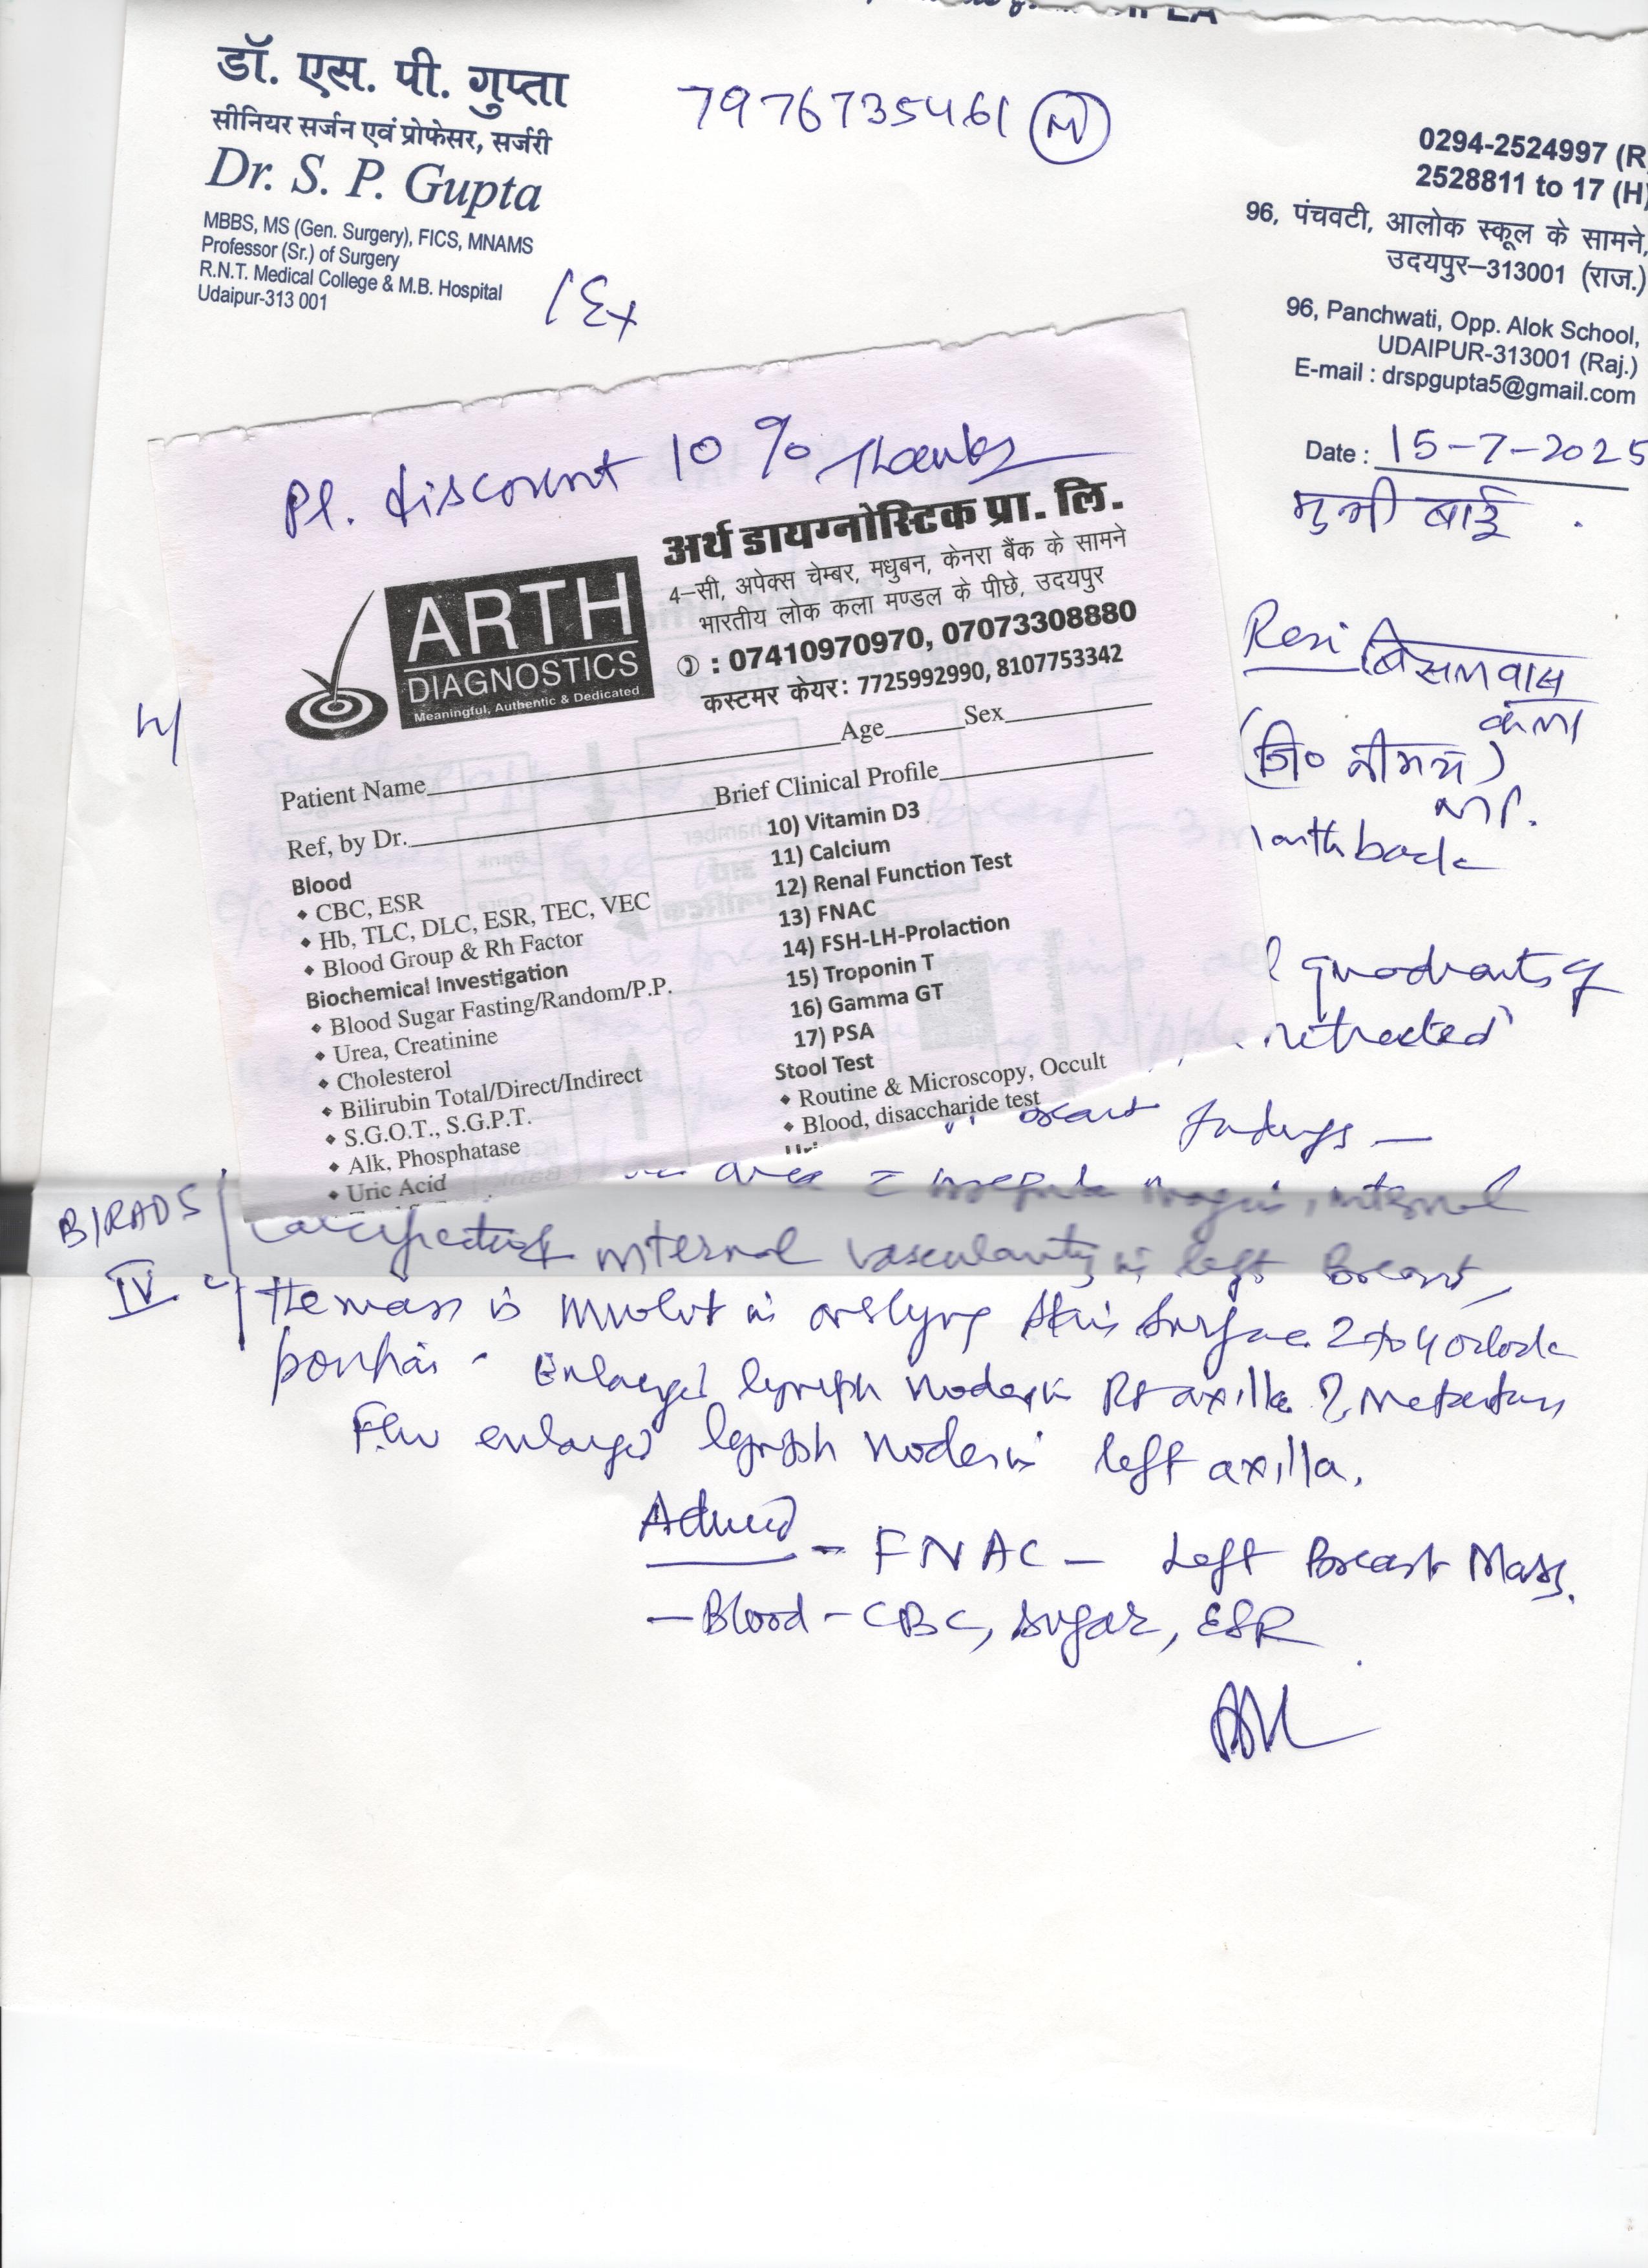 डॉ. एस. पी. गुप्ता
सीनियर सर्जन एवं प्रोफेसर, सर्जरी
Dr. S. P. Gupta
MBBS, MS (Gen. Surgery), FICS, MNAMS
Professor (Sr.) of Surgery
R.N.T. Medical College & M.B. Hospital
Udaipur-313 001
7976735461 (M)
0294-2524997 (R
2528811 to 17 (H)
96, पंचवटी, आलोक स्कूल के सामने,
उदयपुर–313001 (राज.)
96, Panchwati, Opp. Alok School,
UDAIPUR-313001 (Raj.)
E-mail : drspgupta5@gmail.com
Date : 15-7-2025
बाई
Resi
(जि०
M.P.
month back
quadrants of
retracted
Pl. discount 10 % Thanks
अर्थ डायग्नोस्टिक प्रा. लि.
4–सी, अपेक्स चेम्बर, मधुबन, केनरा बैंक के सामने
भारतीय लोक कला मण्डल के पीछे, उदयपुर
✆ : 07410970970, 07073308880
कस्टमर केयर: 7725992990, 8107753342
ARTH
DIAGNOSTICS
Meaningful, Authentic & Dedicated
Patient Name Age Sex
Ref, by Dr. Brief Clinical Profile
Blood
CBC, ESR
Hb, TLC, DLC, ESR, TEC, VEC
Blood Group & Rh Factor
Biochemical Investigation
Blood Sugar Fasting/Random/P.P.
Urea, Creatinine
Cholesterol
Bilirubin Total/Direct/Indirect
S.G.O.T., S.G.P.T.
Alk, Phosphatase
Uric Acid
10) Vitamin D3
11) Calcium
12) Renal Function Test
13) FNAC
14) FSH-LH-Prolaction
15) Troponin T
16) Gamma GT
17) PSA
Stool Test
Routine & Microscopy, Occult
Blood, disaccharide test
findings —
area internal
BIRADS internal vascularity in left Breast,
IV The mass is overlying skin surface 2 to 4 o'clock
Enlarged lymph nodes in Rt axilla ?
Few enlarged lymph nodes in left axilla.
Advised – FNAC – Left Breast Mass.
– Blood – CBC, sugar, ESR